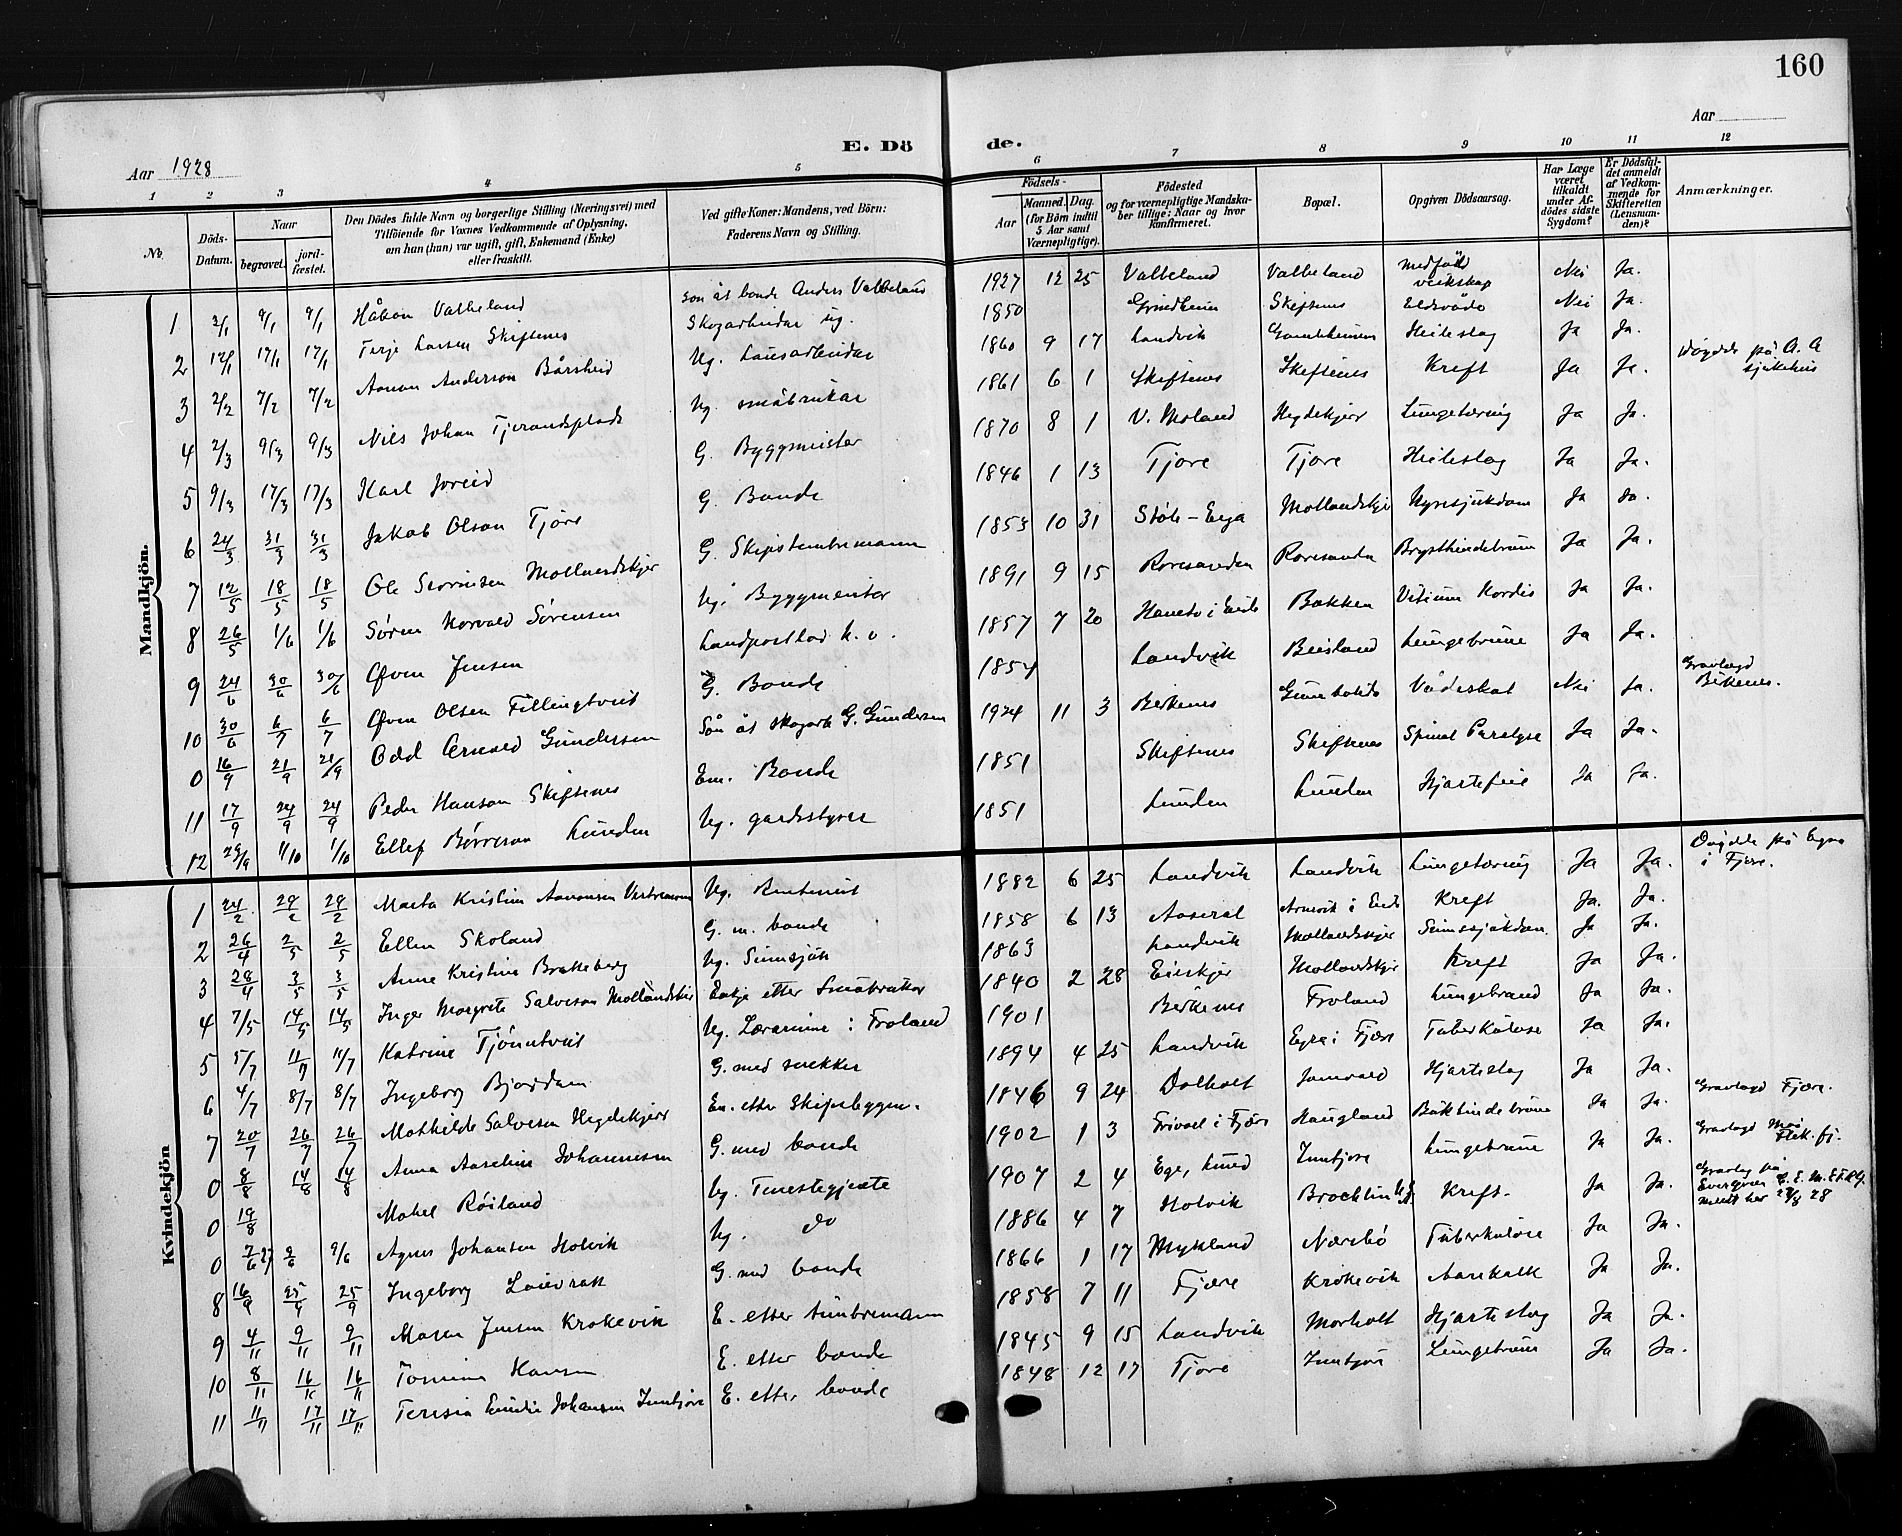 160
Aar 1928
E. Döde.
Aar
1 2 3 4 5 6 7 8 9 10 11 12
No.
Döds-Datum.
Naar
begravet.
jordfæstet.
Den Dödes fulde Navn og borgerlige Stilling (Næringsvei) med
Tilföiende for Voxnes Vedkommende af Oplysning,
om han (hun) var ugift, gift, Enkemand (Enke)
eller fraskilt.
Ved gifte Koner: Mandens, ved Börn:
Faderens Navn og Stilling.
Födsels-
Aar
Maaned. Dag.
(for Börn indtil
5 Aar samt
Værnepligtige).
Födested
og for værnepligtige Mandskaber tillige: Naar og hvor
konfirmeret.
Bopæl.
Opgiven Dödsaarsag.
Har Læge
været
tilkaldt
under Afdödes sidste
Sygdom?
Er Dödsfaldet anmeldt
af Vedkommende for
Skifteretten
(Lensmanden)?
Anmærkninger.
Mandkjön.
1 2/1 9/1 9/1 Håkon Valbeland son åt bonde Anders Valbeland 1927 12 25 Valbeland Valbeland medfødd veikskap Nei Ja.
2 12/1 17/1 17/1 Terje Larsen Skiftenes Skogarbeidar ug. 1850 Grindheim Skiftenes Eldsvåde Nei Ja.
3 2/2 7/2 7/2 Aanon Anderson Bårsheid Ug. Lausarbeidar 1860 9 17 Landvik Heileslag Ja Ja.
4 2/3 9/3 9/3 Nils Johan Tjerandsplads Ug. småbrukar 1861 6 1 Skiftenes Skiftenes Kreft Ja Ja. Døydde på A. A sjukehus
5 9/3 17/3 17/3 Karl Joreid G. Byggmeister 1870 8 1 V. Moland Hegdekjerr Lungetæring Ja Ja.
6 24/3 31/3 31/3 Jakob Olson Tjøre G. Bonde 1846 1 13 Tjore Tjore Heileslag Ja Ja.
7 12/5 18/5 18/5 Ole Severinsen Mollandskjer G. Skipstømbremann 1853 10 31 Støle-Eiga Mollandskjer Nyresjukdom Ja Ja.
8 26/5 1/6 1/6 Søren Norvald Sørensen Ug. Byggmeister 1891 9 15 Roresanden Roresanden Brysthindebrune Ja Ja.
9 24/6 30/6 30/6 Øven Jensen Landpostbod k. o. 1857 7 20 Haneto i Eide Bakken Vitium Kordis Ja Ja.
10 30/6 6/7 6/7 Øven Olsen Fillingtveit G. Bonde 1854 Landvik Beisland Lungebrune Ja Ja.
0 16/9 21/9 21/9 Odd Arnold Gundersen Son åt skogarb G. Gundersen 1924 11 3 Birkenes Vådeskot Nei Ja. Gravlagd Birkenes.
11 17/9 24/9 24/9 Peder Hanson Skiftenes Em. Bonde 1851 Skiftenes Skiftenes Spinal Paralyse Ja Ja.
12 29/9 1/10 1/10 Ellef Børreson Lunden Ug. gardsstyrer 1851 Lunden Lunden Hjartefeil Ja Ja.
Kvindekjön
1 24/2 28/2 28/2 Marta Kristine Aanonsen Ug. 1882 6 25 Landvik Landvik Lungetæring Ja Ja. Døydde på Egra i Fjære.
2 26/4 2/5 2/5 Ellen Skoland G. m. bonde 1858 6 13 Aaseral Arnevik i Eide Kreft Ja. Ja.
3 28/4 3/5 3/5 Anna Kristine Brakeberg Ug. Sinnsjuk 1863 Landvik Mollandskjer Sinnssjukdom Ja Ja.
4 7/5 14/5 14/5 Inger Margrete Salveson Mollandskjer Enkje etter Småbrukar 1840 2 28 Eieskjer Mollandskjer Kreft Ja Ja.
5 5/7 11/7 11/7 Katrine Tjønntveit Ug. Lærarinne i Froland 1901 Birkenes Froland Lungebrand Ja Ja.
6 4/7 8/7 8/7 Ingeborg Bjordam G. med snekker 1894 4 25 Landvik Egra i Fjære Tuberkulose Ja Ja.
7 20/7 26/7 26/7 Mathilde Salvesen Hegdekjerr En. etter skipsbyggm. 1846 9 24 Dolholt Hjarteslag Ja Ja.
0 8/8 14/8 14/8 Anna Aaseline Johannesen G. med bonde 1902 1 3 Frivoll i Fjære Haugland Bukhindebrune Ja Ja. Gravlagd Fjære.
0 19/8 Mabel Røiland Ug. Tenestegjente 1907 2 4 Ege, Lund Inntjore Lungebrune Ja Ja. Gravlagd Moi Flek.fj.
0 7/6 27 9/6 9/6 Agnes Johansen Holvik Ug. do 1886 4 7 Holvik Brocklin Kreft. Ja Ja. Gravlag på Evergreen meldt her 28
8 16/9 25/9 25/9 Ingeborg G. med bonde 1866 1 17 Mykland Nærebø Tuberkulose Ja Ja.
9 4/11 9/11 9/11 Maren Jensen Krokevik E. etter tømbremann 1858 7 11 Fjære Krokevik Aarekalk Ja Ja.
10 8/11 16/11 16/11 Tomine Hansen E. etter bonde 1845 9 15 Landvik Morholt Hjarteslag Ja Ja.
11 11/11 17/11 17/11 Teresia Emilie Johansen Inntjore E. etter bonde 1848 12 17 Tjore Inntjore Lungebrune Ja Ja.